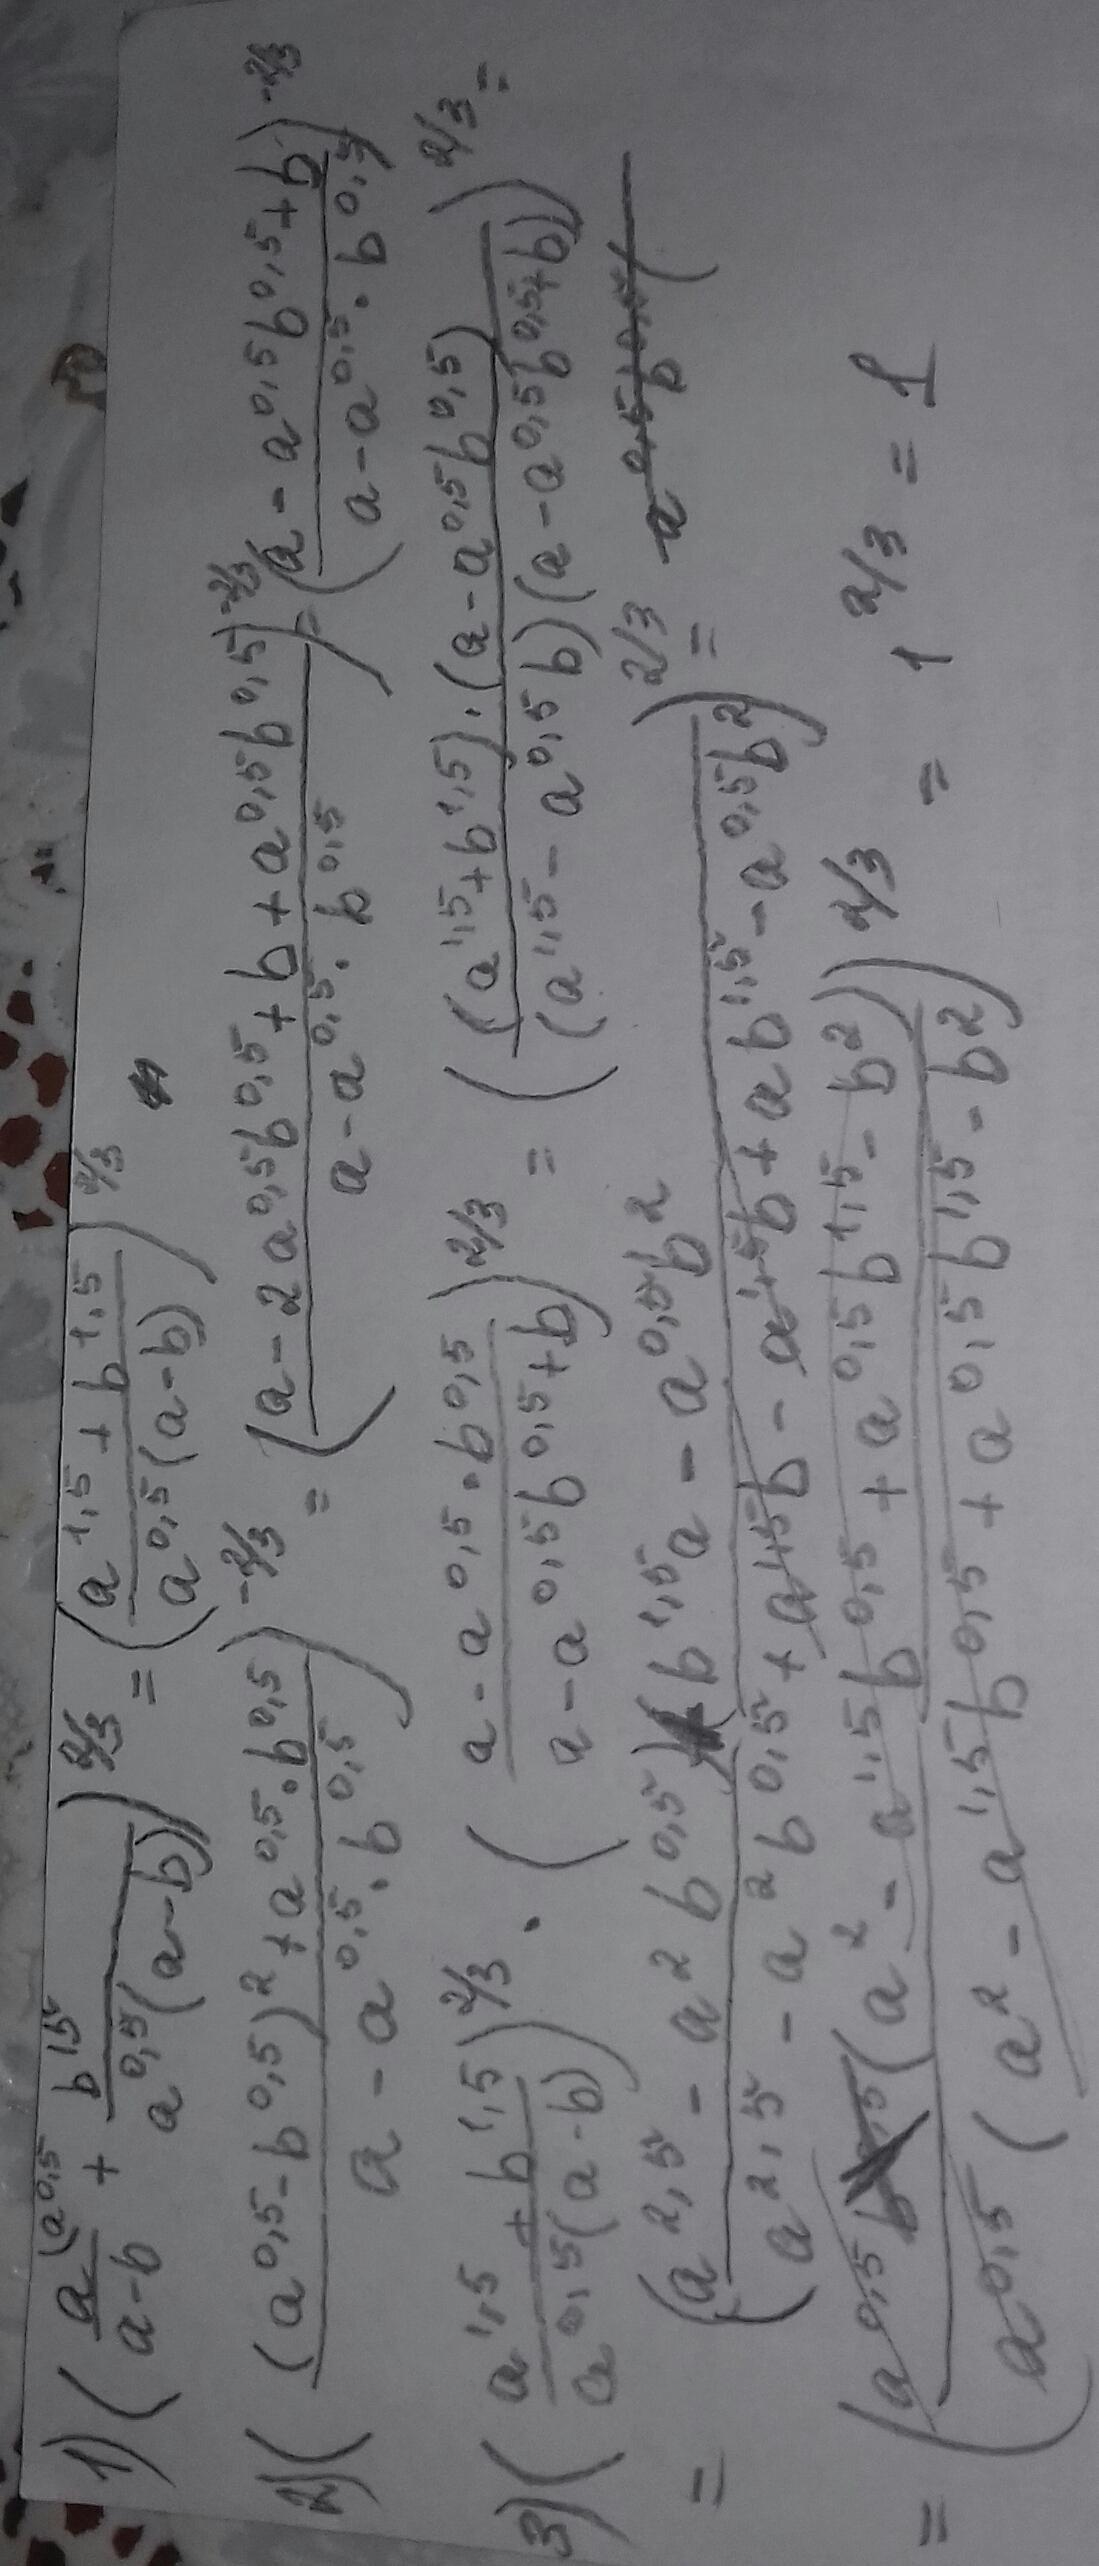 1) (a/(a-b) (a^0,5 + b^1,5/(a^0,5(a-b)))^2/3 = ((a^1,5 + b^1,5)/(a^0,5(a-b)))^2/3
2) (((a^0,5 - b^0,5)^2 + a^0,5 · b^0,5)/(a - a^0,5 · b^0,5))^-2/3 = ((a - 2a^0,5b^0,5 + b + a^0,5b^0,5)/(a - a^0,5 · b^0,5))^-2/3 = ((a - a^0,5b^0,5 + b)/(a - a^0,5 · b^0,5))^-2/3
3) ((a^1,5 + b^1,5)/(a^0,5(a-b)))^2/3 · ((a - a^0,5 · b^0,5)/(a - a^0,5b^0,5 + b))^2/3 = (((a^1,5 + b^1,5) · (a - a^0,5b^0,5))/((a^1,5 - a^0,5b)(a - a^0,5b^0,5 + b)))^2/3 =
= ((a^2,5 - a^2b^0,5 + b^1,5a - a^0,5b^2)/(a^2,5 - a^2b^0,5 + a^1,5b - a^1,5b + ab^1,5 - a^0,5b^2))^2/3 =
= ((a^0,5(a^2 - a^1,5b^0,5 + a^0,5b^1,5 - b^2))/(a^0,5(a^2 - a^1,5b^0,5 + a^0,5b^1,5 - b^2)))^2/3 = 1^2/3 = 1